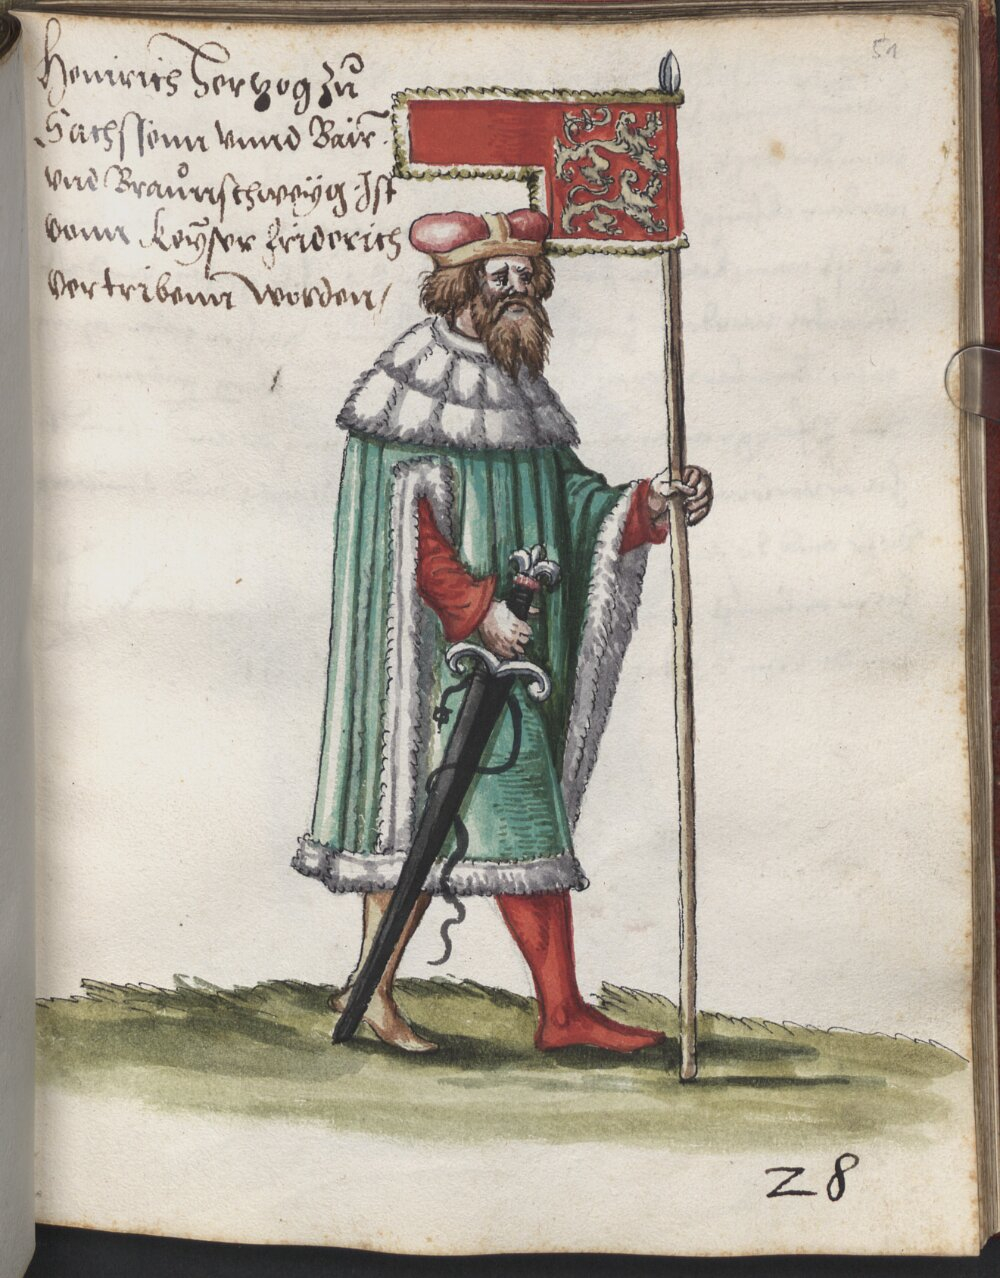 51
Heinrich Hertzog zu
Sachssenn vnnd Bair
vnd Braunschweyg Ist
vonn Keyser Friderich
vertribenn worden /
28